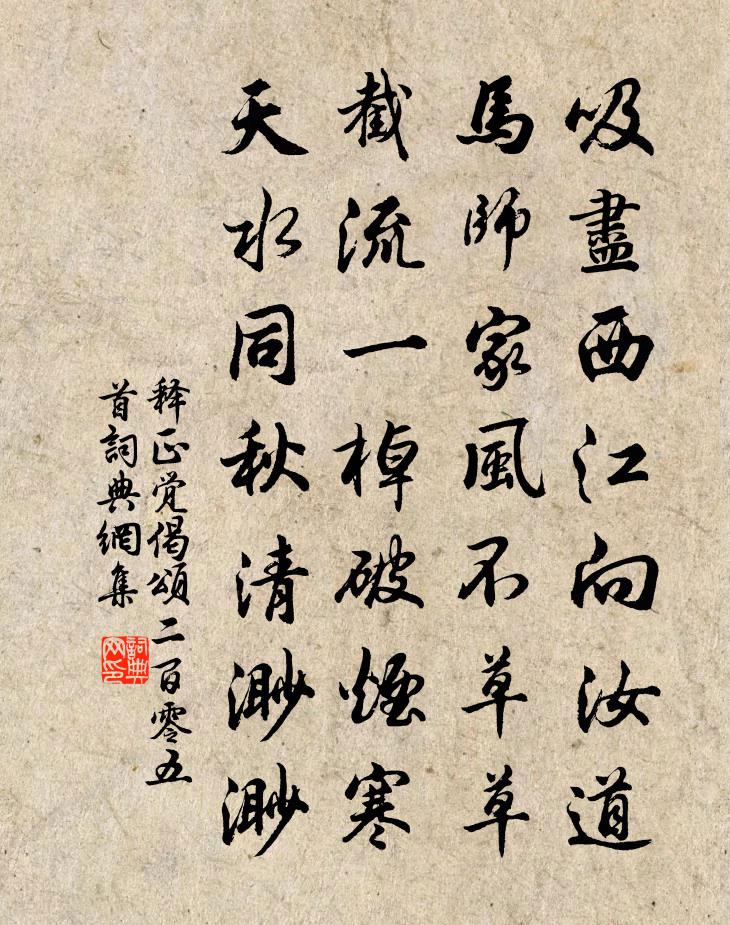 吸盡西江向汝道
馬師家風不草草
截流一棹破煙寒
天水同秋清渺渺
释正覚偈頌二百零五
首詞典網集
詞典
网印